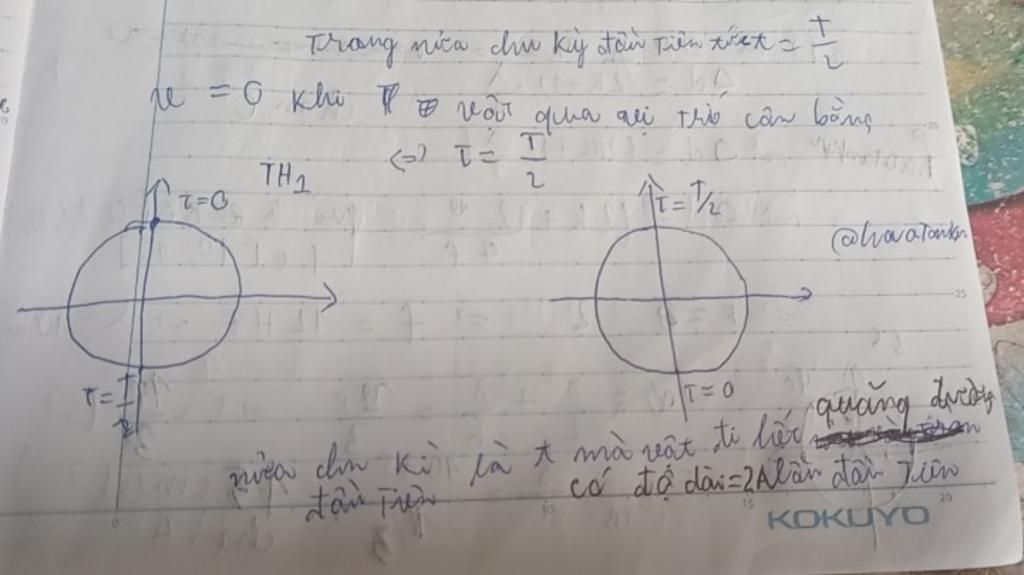 Trong nửa chu kỳ đầu tiên tức t = T/2
= 0 khi vật qua vị trí cân bằng
<=> t = T/2
TH1
t=0
t=T/2
@hoatonkn
t=T/2
t=0
quãng đường
nửa chu kì là t mà vật đi hết
đầu tiên có độ dài=2A lần đầu tiên
KOKUYO